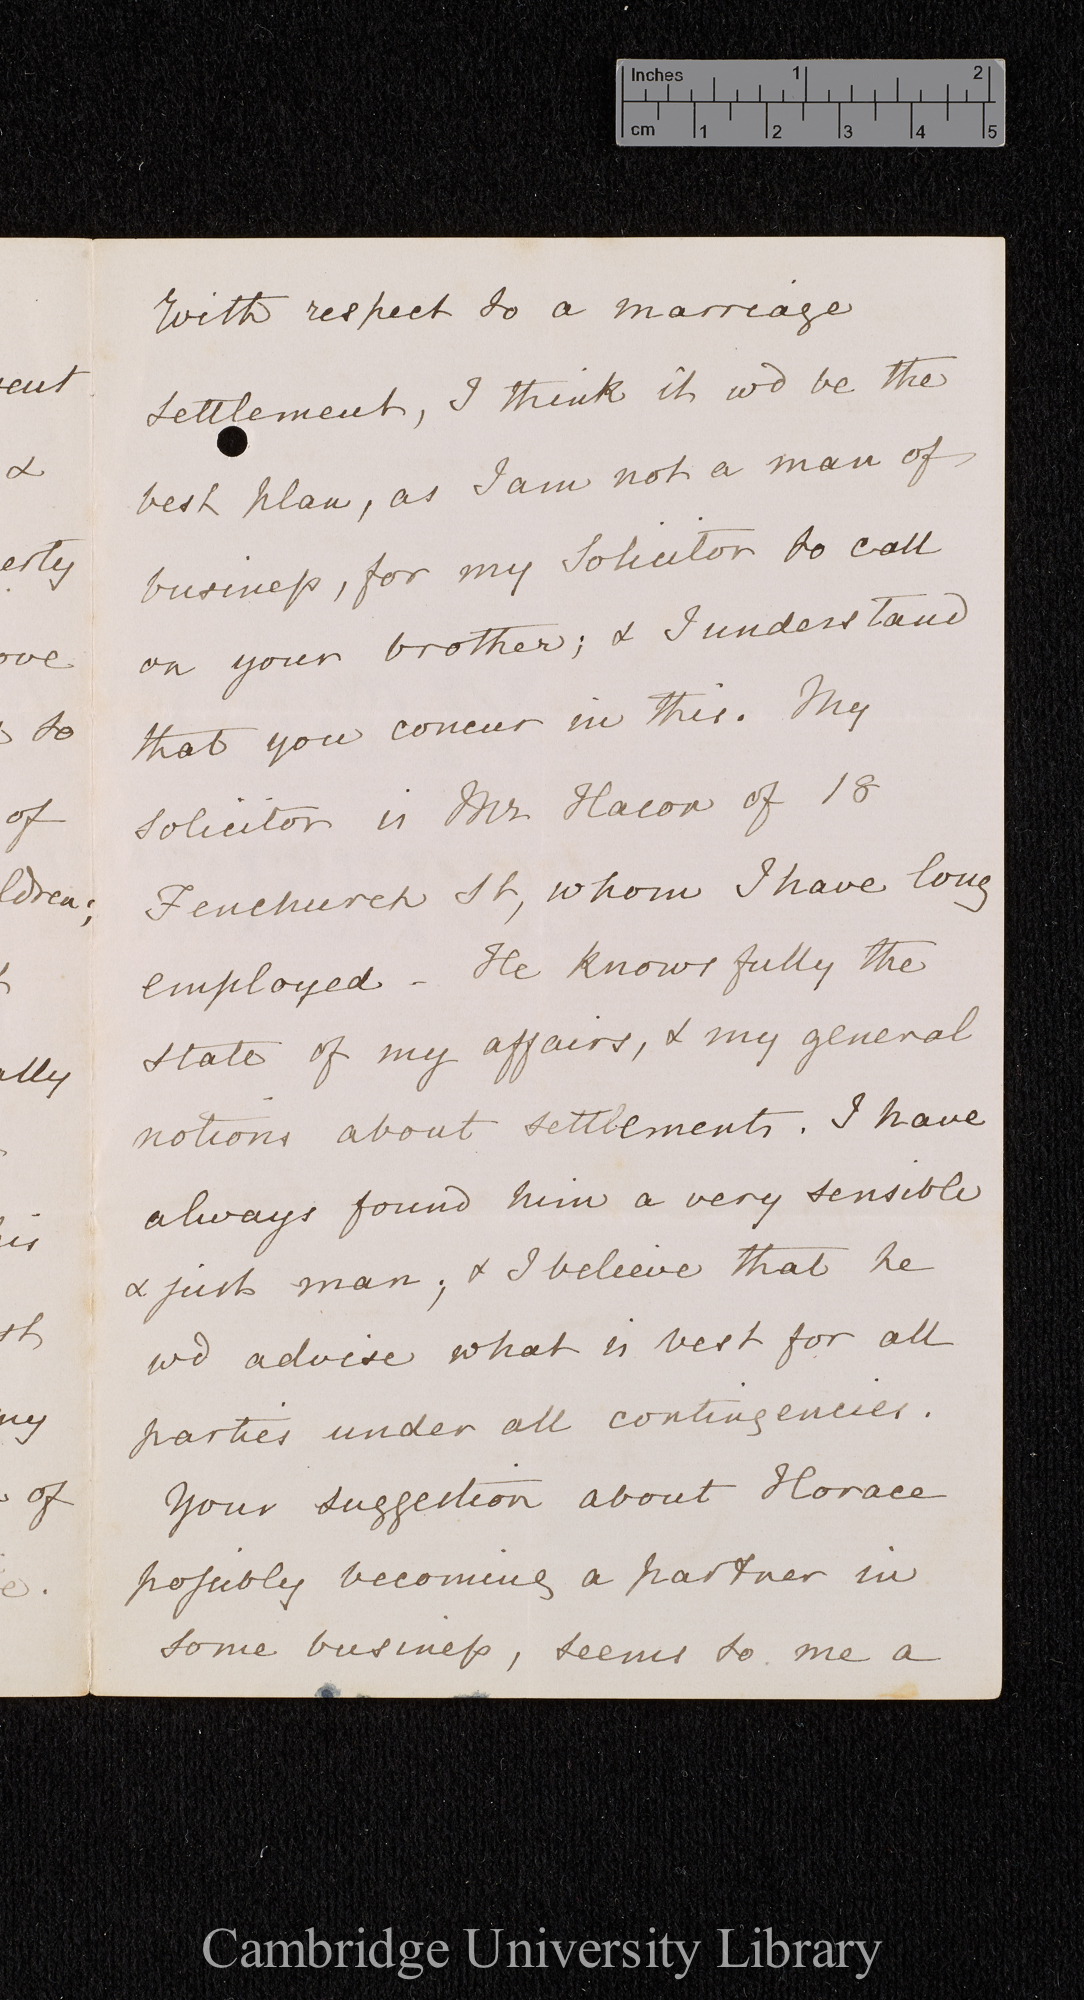 Inches 1 2
cm 1 2 3 4 5
With respect to a marriage
settlement, I think it wd be the
best plan, as I am not a man of
business, for my Solicitor to call
on your brother; & I understand
that you concur in this. My
solicitor is Mr Hacon of 18
Fenchurch St, whom I have long
employed – He knows fully the
state of my affairs, & my general
notions about settlements. I have
always found him a very sensible
& just man; & I believe that he
wd advise what is best for all
parties under all contingencies.
Your suggestion about Horace
possibly becoming a partner in
some business, seems to me a
&
erty
ove
to
of
ldren;
ally
my
of
Cambridge University Library